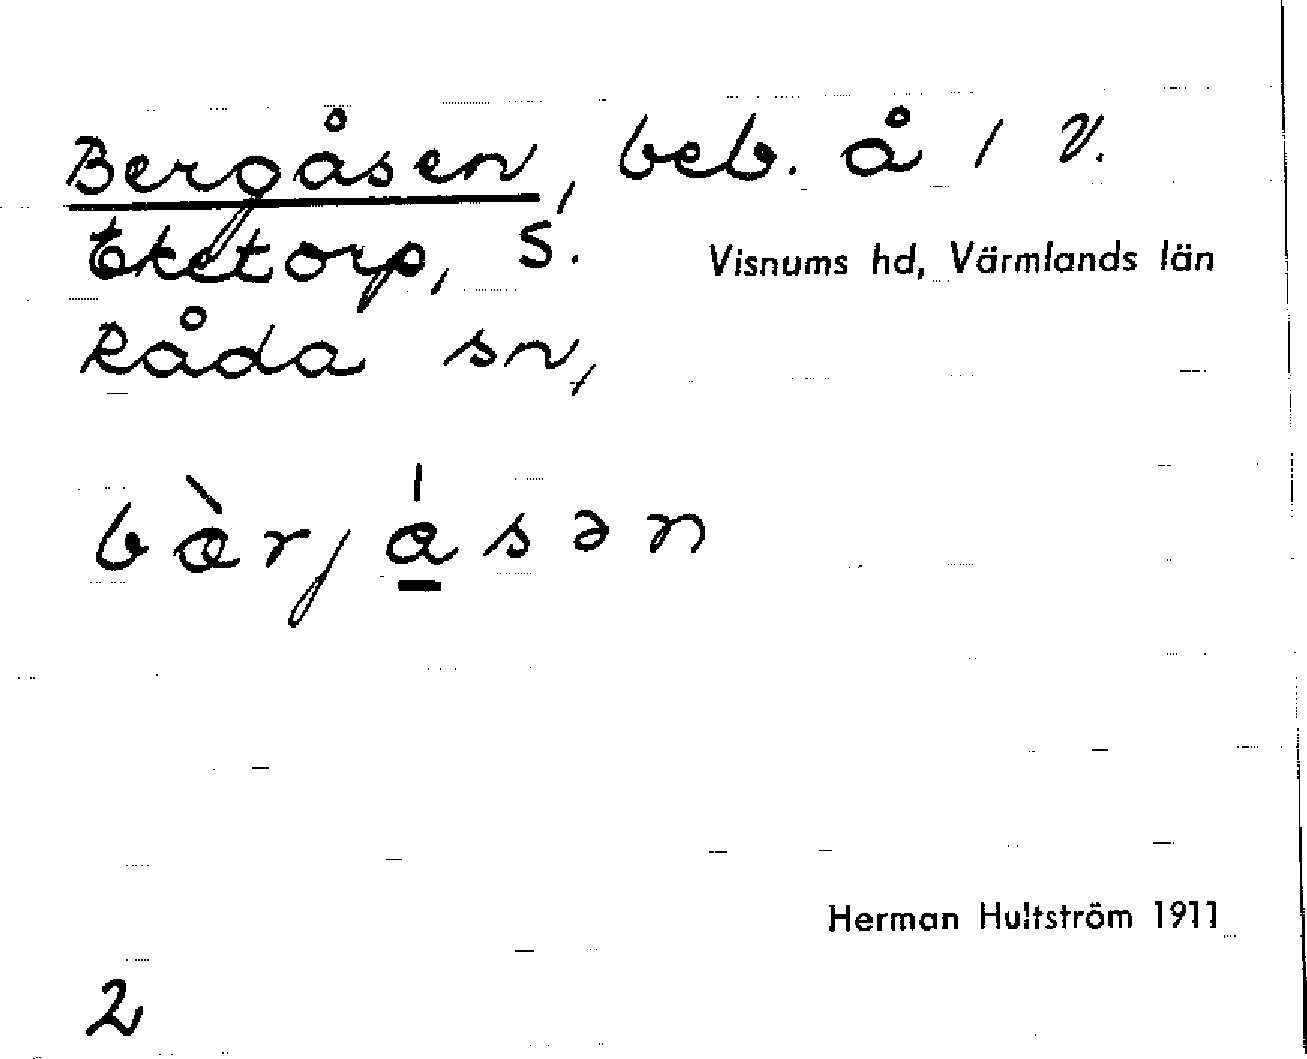 Bergåsen, beb. å / V.
Eketorp, S.
Visnums hd, Värmlands län
Råda sn,
bàrjása̱n
Herman Hultström 1911
2